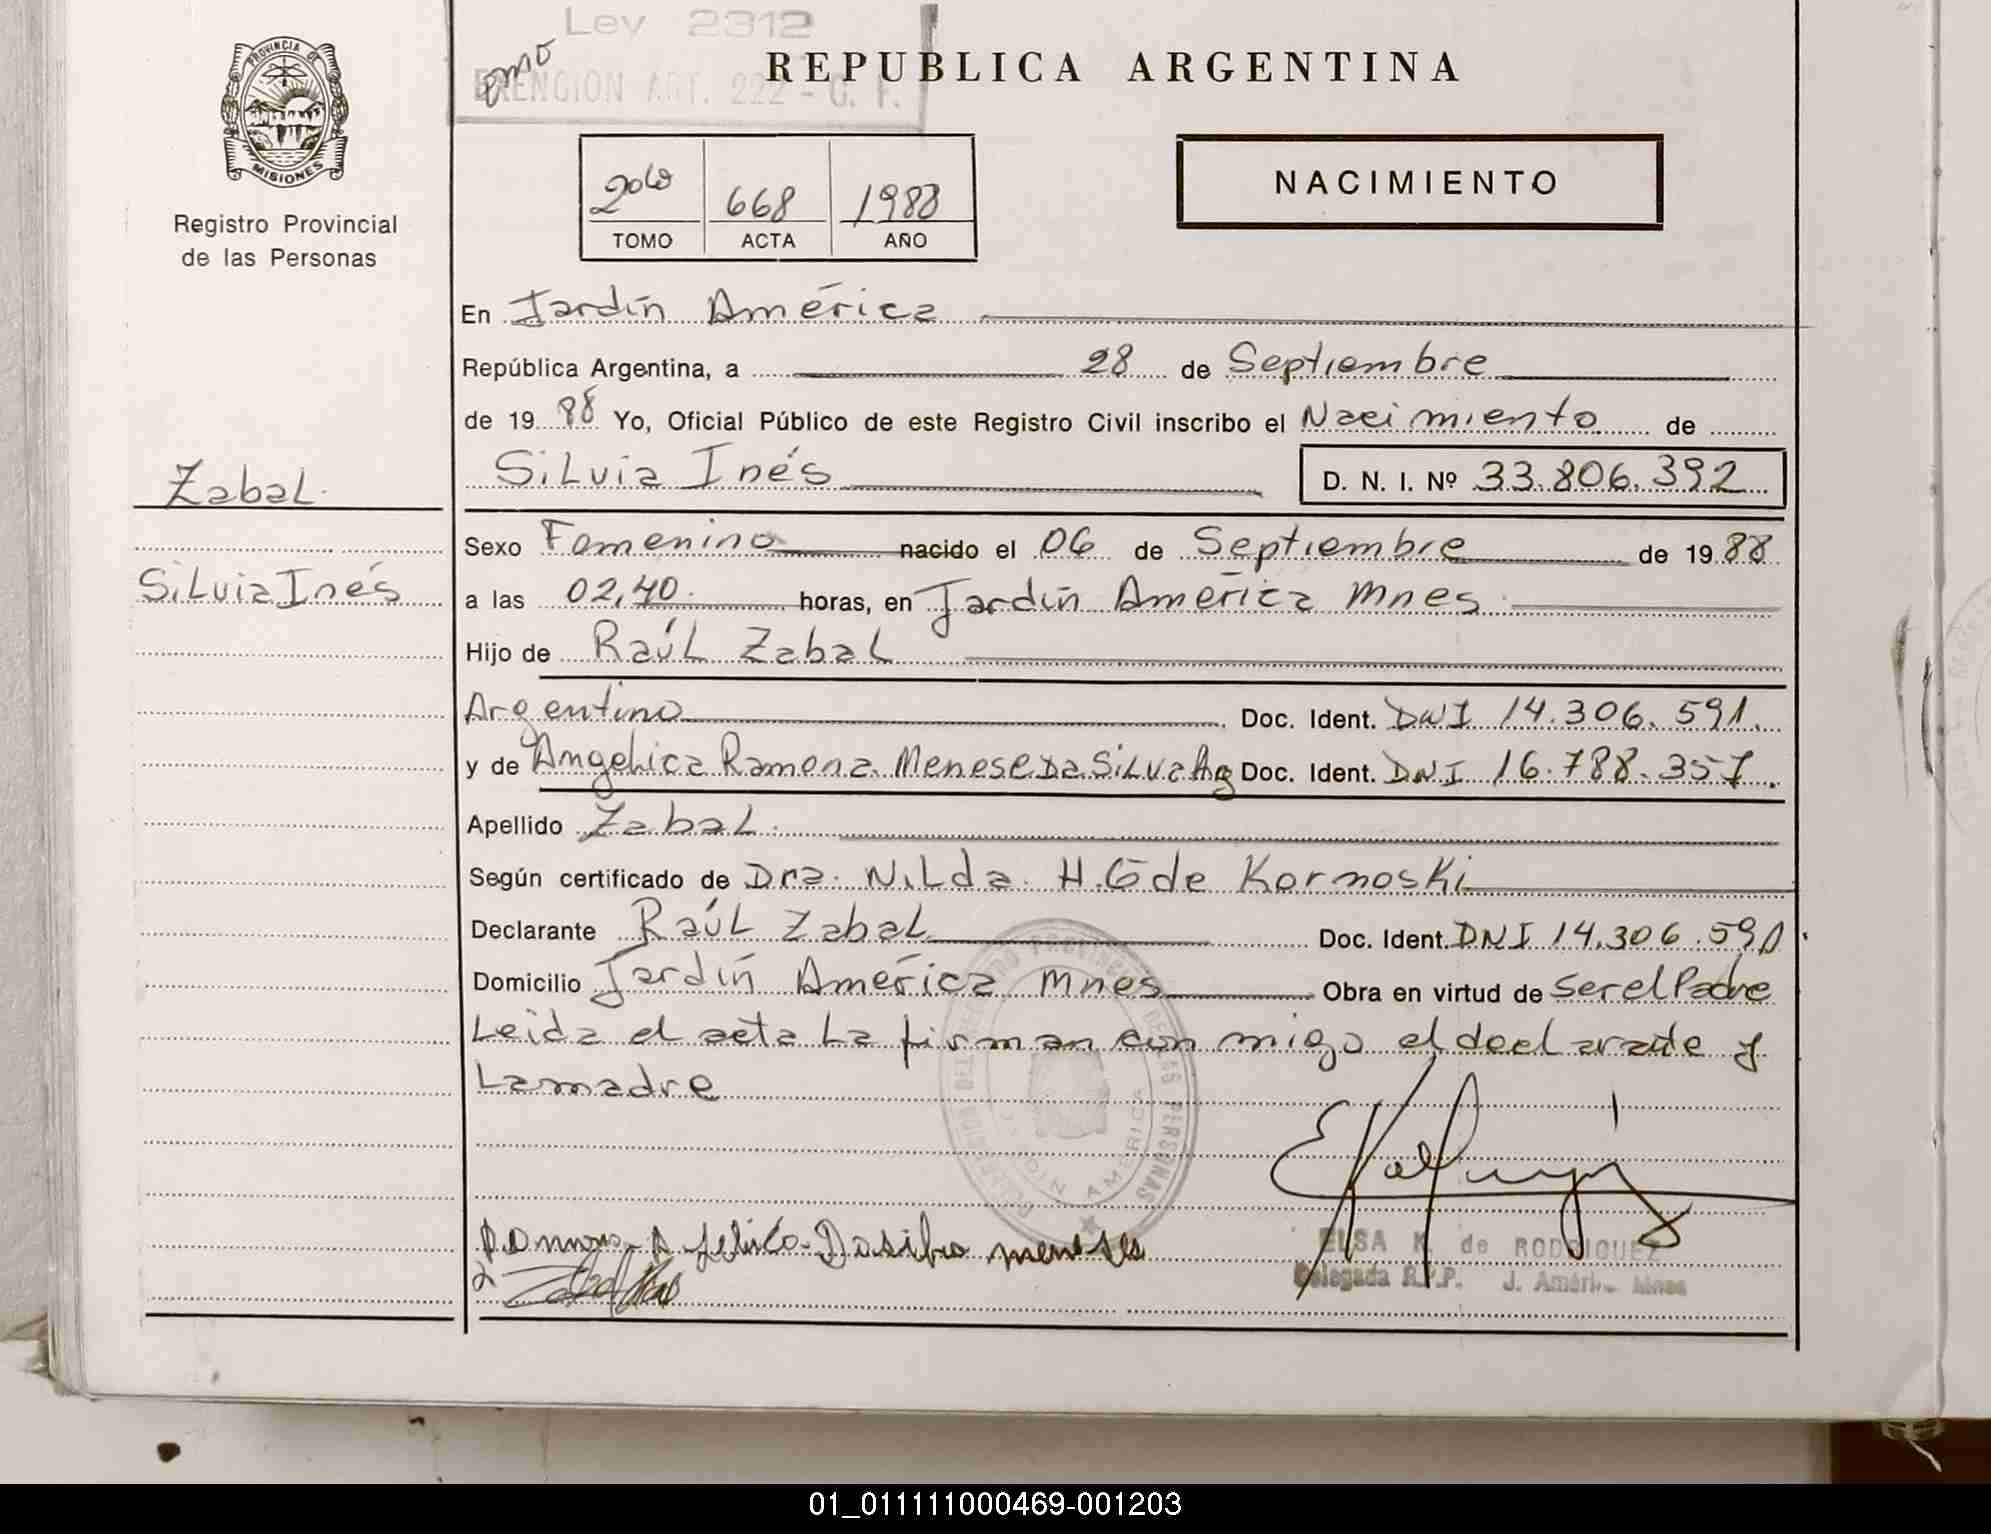 Ley 2312
EXENCION ART. 222 - C. F.
REPUBLICA ARGENTINA
PROVINCIA DE MISIONES
Registro Provincial
de las Personas
2do 668 1988
TOMO ACTA AÑO
NACIMIENTO
En Jardín América
República Argentina, a 28 de Septiembre
de 1988 Yo, Oficial Público de este Registro Civil inscribo el Nacimiento de
Silvia Inés D. N. I. Nº 33.806.392
Zabal
Silvia Inés
Sexo Femenino nacido el 06 de Septiembre de 1988
a las 02,40. horas, en Jardín América Mnes
Hijo de Raúl Zabal
Argentino Doc. Ident. DNI 14.306.591.
y de Angelica Ramona Menese Da Silva Ag Doc. Ident. DNI 16.788.357.
Apellido Zabal.
Según certificado de Dra. Nilda H. G de Kornoski
Declarante Raúl Zabal Doc. Ident. DNI 14.306.591
Domicilio Jardín América Mnes Obra en virtud de ser el Padre
Leida el acta la firman con migo el declarante y
la madre
ELSA K. de RODRIGUEZ
Delegada R.P.P. J. América Mnes
01_011111000469-001203